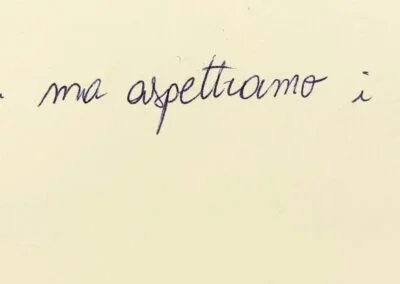 ma aspettiamo i